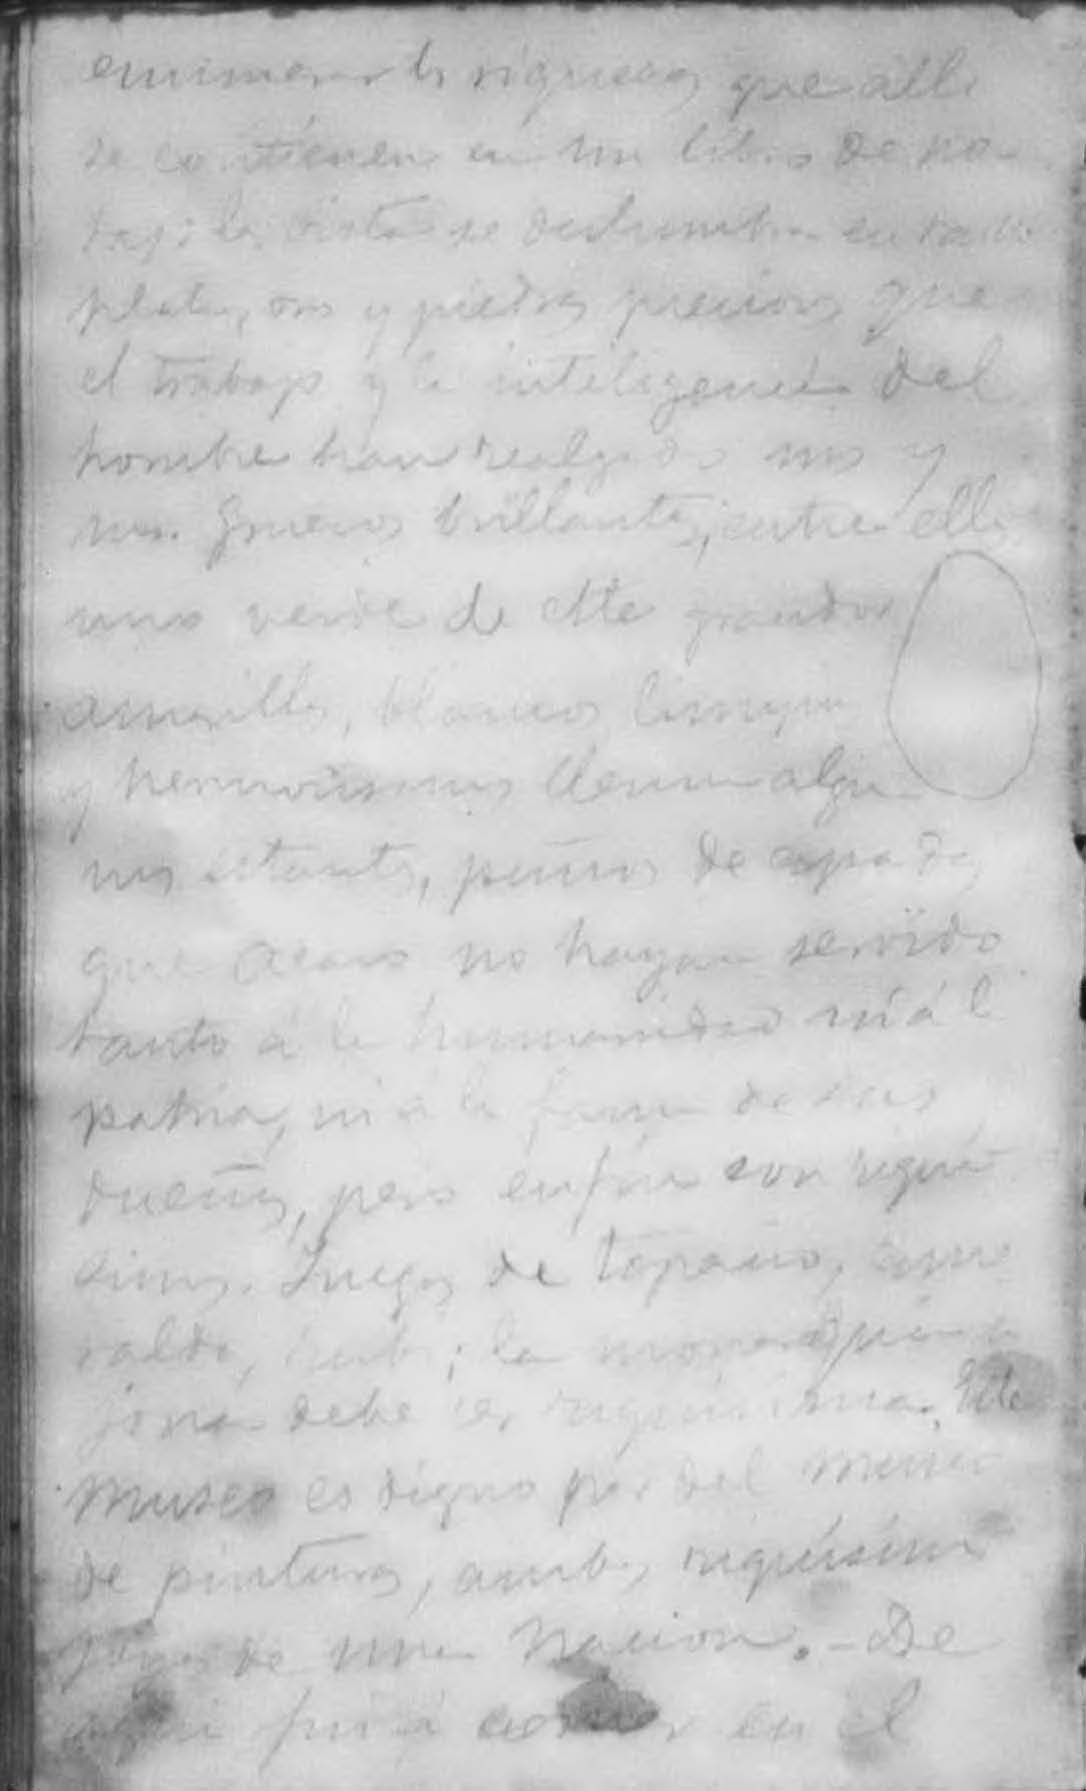 enumerar ls riquezas que alli
se contienen en un libro de no-
tas; la vista se deslumbra en tanta
plata, oro y piedras preciosas que
el trabajo y la inteligencia del
hombre han realzado mas y
mas. Gruesos brillantes, entre ellos
uno verde de este grandor
amarillos, blancos
y hermosisimos llenan algu
nos estantes, puños de espadas
que acaso no hayan servido
tanto á la humanidad ni á l
patria, ni á la fama de sus
dueños, pero en fin son riquí
simos. Juegos de topacios, esme
raldas, rubis; la monarquia
debe ser riquisima. Este
Museo es digno par del museo
de pinturas, ambos riquísimas
joyas de una Nacion. - De
aqui fui á comer en el